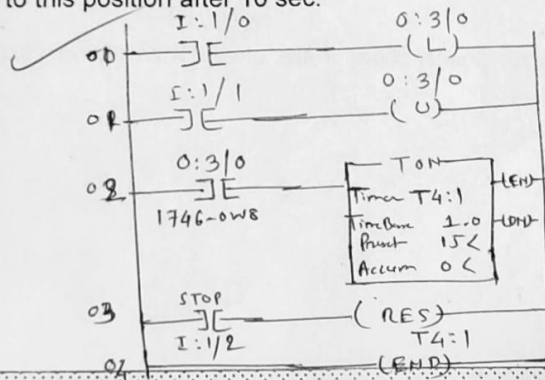 to this position after 10 sec.
I:1/0 O:3/0
00 ] [ (L)
I:1/1 O:3/0
01 ] [ (U)
O:3/0 TON
02 ] [ (EN)
1746-OW8 Timer T4:1
Time Base 1.0 (DN)
Preset 15<
Accum 0<
STOP
03 ] [ (RES)
I:1/2 T4:1
04 (END)